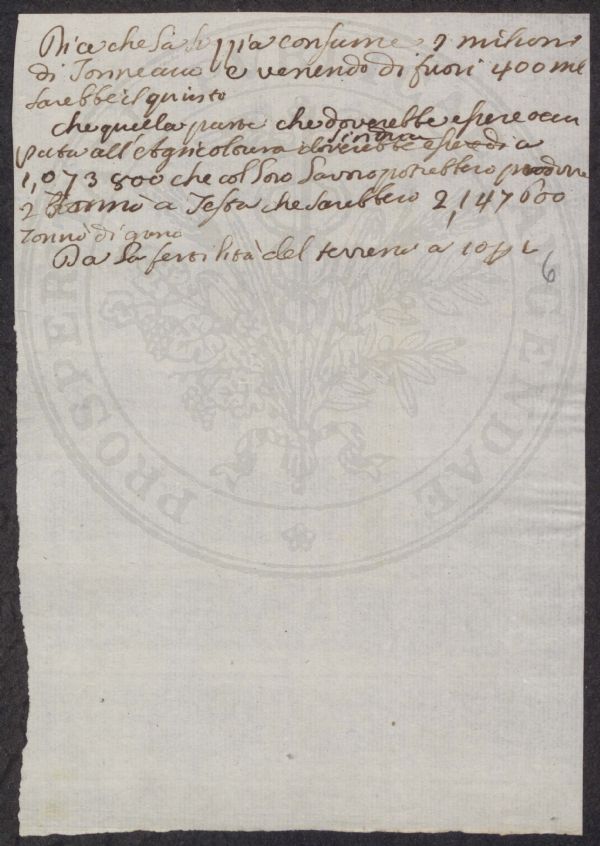 Dice che la consumi 2 milioni
di Tonneaux e venendo di fuori 400 mil
sarebbe il quinto
che quella parte che doverebbe essere occu
pata all'Agricoltura doverebbe essere di a
1,073 800 che col loro Lavoro potrebbero produrre
2 a Testa che sarebbero 2,147600
di grano
Da la fertilità del terreno a 10
6
PROSPER
GENDAE